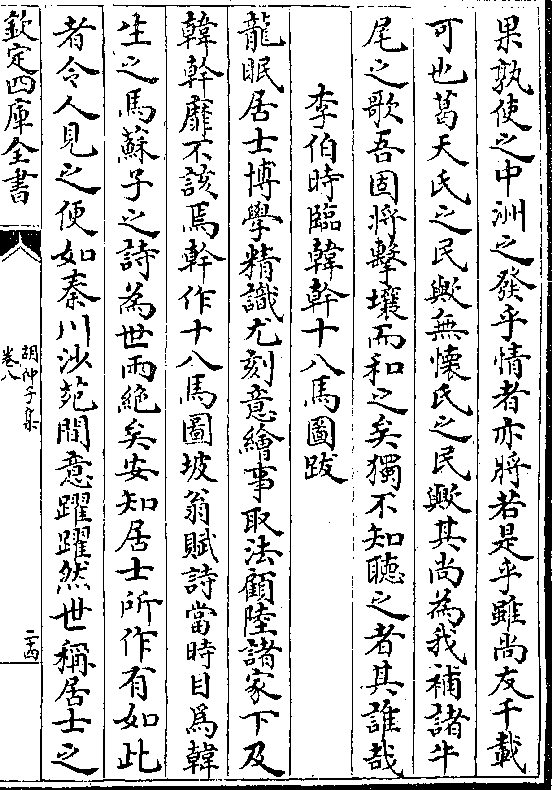 果孰使之中洲之發乎情者亦將若是乎雖尚友千載
可也葛天氏之民歟無懷氏之民歟其尚為我補諸牛
尾之歌吾固將擊壤而和之矣獨不知聽之者其誰哉
李伯時臨韓幹十八馬圖跋
龍眠居士博學精識尤刻意繪事取法顧陸諸家下及
韓幹靡不該焉幹作十八馬圖坡翁賦詩當時目為韓
生之馬蘇子之詩為世兩絶矣安知居士所作有如此
者令人見之便如秦川沙苑間意躍躍然世稱居士之
欽定四庫全書
胡仲子集
卷八
二十四